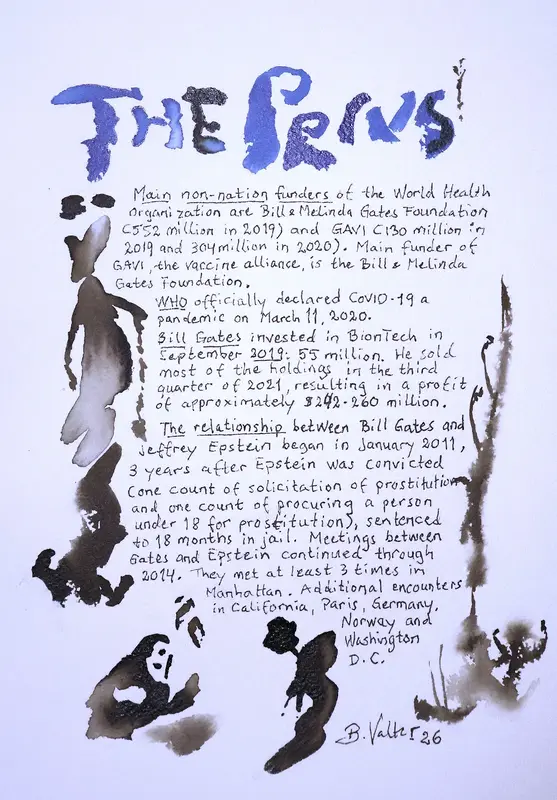 THE PERVS
Main non-nation funders of the World Health
Organization are Bill & Melinda Gates Foundation
(552 million in 2019) and GAVI (130 million in
2019 and 304 million in 2020). Main funder of
GAVI, the vaccine alliance, is the Bill & Melinda
Gates Foundation.
WHO officially declared COVID-19 a
pandemic on March 11, 2020.
Bill Gates invested in BionTech in
September 2019: 55 million. He sold
most of the holdings in the third
quarter of 2021, resulting in a profit
of approximately $242-260 million.
The relationship between Bill Gates and
Jeffrey Epstein began in January 2011,
3 years after Epstein was convicted
(one count of solicitation of prostitution
and one count of procuring a person
under 18 for prostitution), sentenced
to 18 months in jail. Meetings between
Gates and Epstein continued through
2014. They met at least 3 times in
Manhattan. Additional encounters
in California, Paris, Germany,
Norway and
Washington
D.C.
B. Valter 26